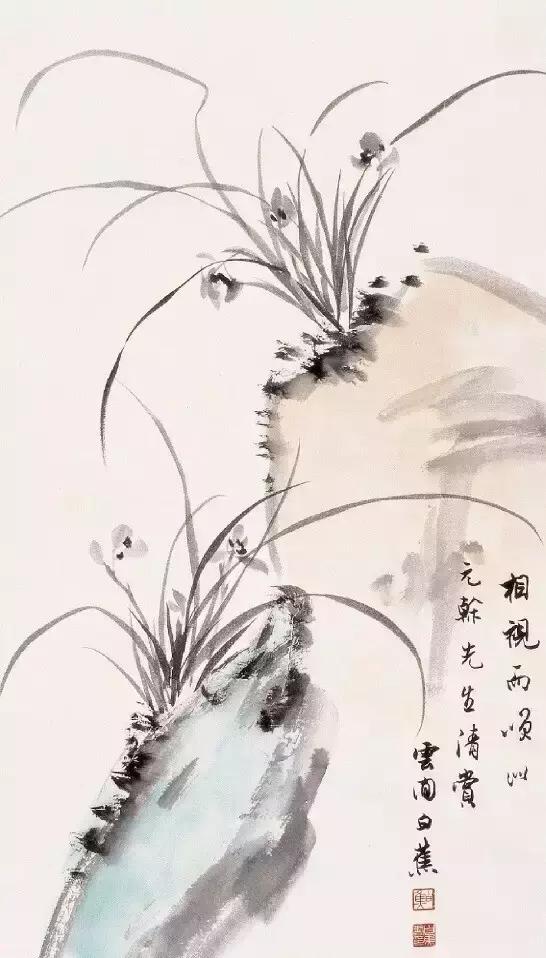 相視而
元榦先生清賞
雲間白蕉